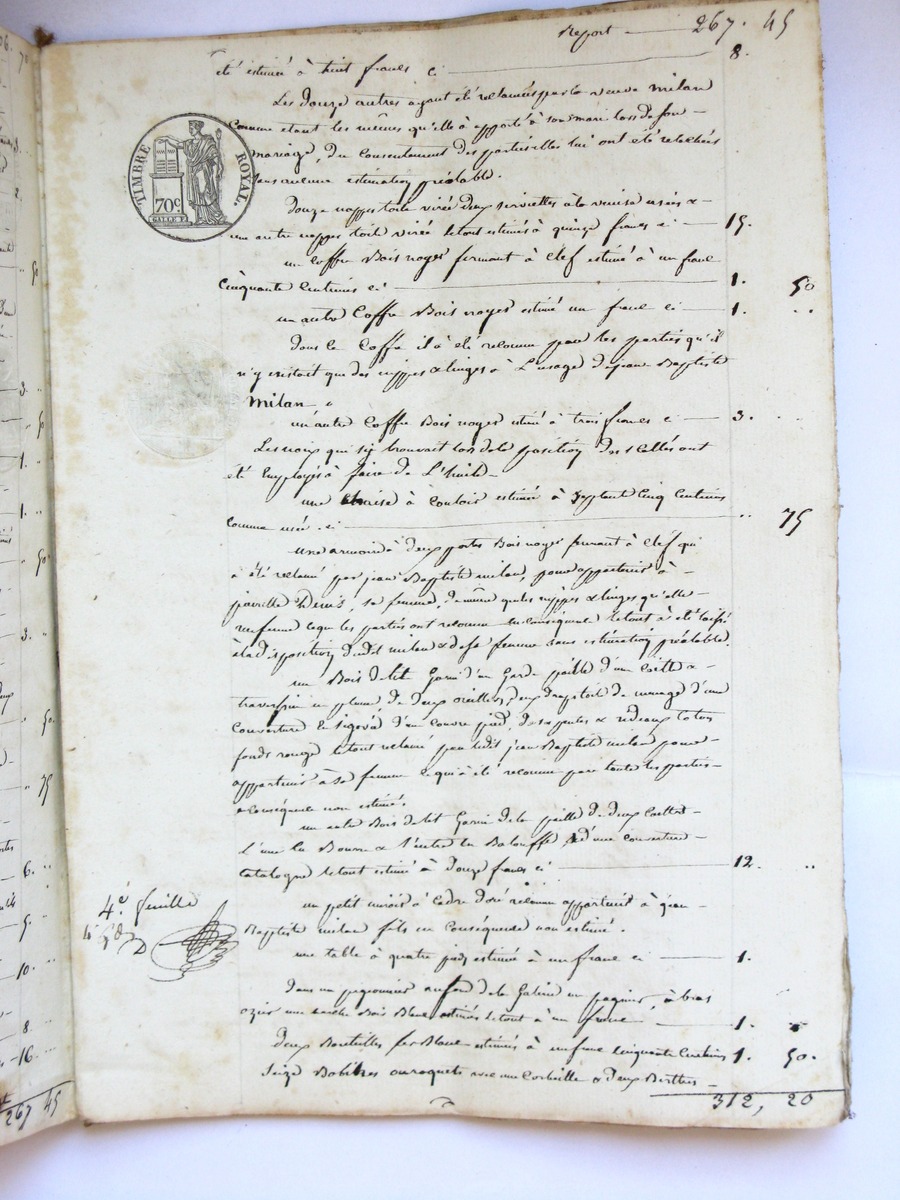 Report 267. 45
été estimé à huit francs ci 8.
Les douze autres ayant été reclamés par la veuve milan
comme etant les mêmes qu'elle à apporté à son mari lors de son
mariage, du Consentement des parties elles lui ont été relachées
sans aucune estimation préalable.
TIMBRE ROYAL.
70c
Douze nappes toile virée deux serviettes à la venise usées &
une autre nappe toile virée le tout estimés à quinze francs ci 15.
un Coffre Bois noyer fermant à Clef estimé à un franc
Cinquante Centimes ci 1. 50
un autre Coffre Bois noyer estimé un franc ci 1. ..
dans le Coffre il à été reconnu par les parties qu'il
n'y existait que des nippes & linges à L'usage de jean Baptiste
Milan.
un autre Coffre Bois noyer estimé à trois francs ci 3.
Les noix qui s'y trouvait lors de la position des scellés ont
été Employés à faire de L'huile
une à Couloir estimée à Septante Cinq Centimes
Comme usée. ci .. 75
une armoire à deux portes Bois noyer fermant à Clef qui
à été reclamé par jean Baptiste milan, pour appartenir à
Denis, sa femme, de même que les nippes & linges qu'elle
renferme ce que les parties ont reconnu En conséquence le tout à été laissé
à la disposition dudit milan & de sa femme sans estimation préalable.
un Bois de lit Garni d'un Garde paille d'une Coitte &
traversin en plume, de deux oreillers, deux draps toile de menage d'une
Couverture d'un couvre pied, de ses pentes & rideaux Coton
fonds rouge le tout reclamé par ledit jean Baptiste milan pour
appartenir à sa femme ce qui à été reconnu par toute les parties
conséquence non estimé.
un autre Bois de lit Garni de la paille de deux
L'une En Bourre & l'autre En Balouffe d'une couverture
Catalogne le tout estimé à Douze francs ci 12. ..
4e. feuille
un petit miroir à Cadre doré reconnu appartenir à jean
Baptiste milan fils en Conséquence non estimé.
une table à quatre pieds estimée à un franc ci 1.
Dans un pigeonnier au fond de la Galerie un à bras
ozier une Bois Blanc estimés le tout à un franc 1.
Deux Bouteilles fer Blanc estimées à un franc cinquante Centimes 1. 50.
Seize Bobines ou roquets avec une Corbeille & deux
312, 20
267 45